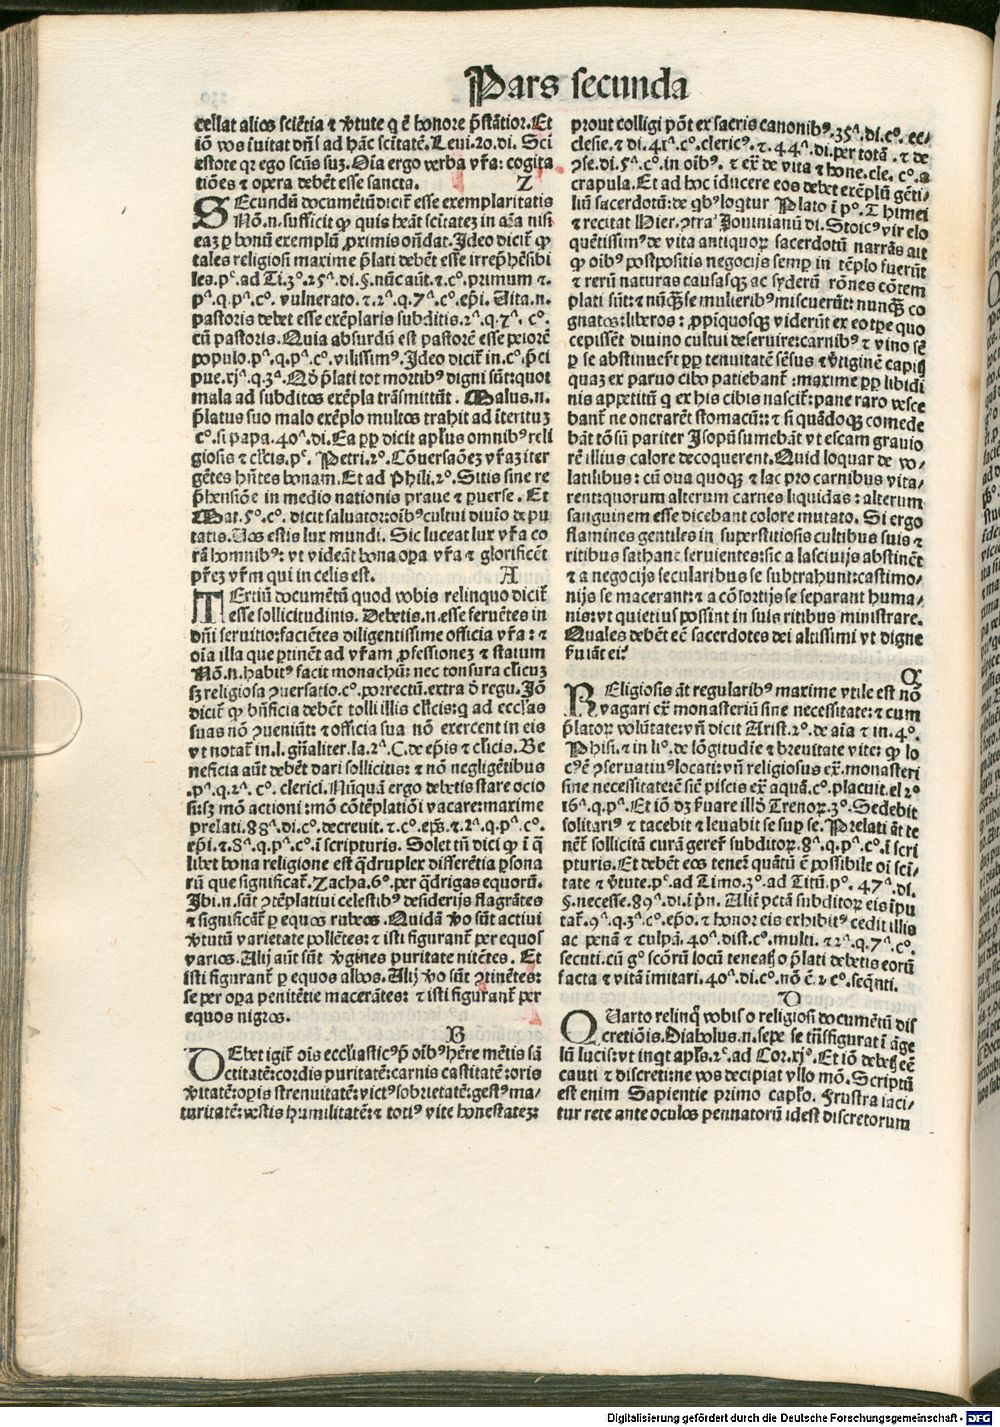 Pars secunda
cellat alios sciẽtia ⁊ v̾tute q̃ ẽ honore p̃stãtior. Et
iõ vos ĩuitat dñs ad hãc sc̃itatẽ. Leui. 20. di. Sc̃i
estote qꝛ ego sc̃us suꝫ. Oĩa ergo verba vr̃a: cogita
tiões ⁊ opera debẽt esse sancta. Z
SEcundũ documẽtũ dicit̃ esse exemplaritatis
Nõ .n. sufficit ꝙ quis hẽat sc̃itateꝫ in aĩa nisi
eaꝫ ꝑ bonũ exemplũ ꝓximis oñdat. Ideo dicit̃ ꝙ
tales religiosi maxime p̃lati debẽt esse irrep̃hẽsibi
les. pᶜ. ad Ti. 3º. 25ª. di. §. nũc aũt. ⁊ .cº. primum ⁊.
pª. q. pª. cº. vulnerato. ⁊ .2ª. q. 7ª. cº. ep̃i. Uita .n.
pastoris debet esse exẽplaris subditis. 2ª. q. 7ª. cº.
cũ pastoris. Quia absurdũ est pastorẽ esse peiorẽ
populo. pª. q. pª. cº. vilissim⁹. Ideo dicit̃ in .cº. p̃ci
pue. xjª. q. 3ª. Qđ p̃lati tot mortib⁹ digni sũt: quot
mala ad subditos exẽpla trãsmittũt. Malus .n.
p̃latus suo malo exẽplo multos trahit ad ĩteritũ ꝫ
cº. si papa. 40ª. di. Ea ꝓp dicit apl̃us omnib⁹ reli
giosis ⁊ cl̃cis. pᶜ. Petri. 2º. Cõuersaõeꝫ vr̃aꝫ iter
gẽtes hñtes bonam. Et ad Phili. 2º. Sitis sine re
p̃hensiõe in medio nationis praue ⁊ ꝑuerse. Et
Mat. 5º. cº. dicit saluator: oĩb⁹ cultui diuĩo depu
tatis. Uos estis lux mundi. Sic luceat lux vr̃a co
rã homnib⁹: vt videãt bona oꝑa vr̃a ⁊ glorificẽt
pr̃eꝫ vr̃m qui in celis est. A
TErtiũ documẽtũ quod vobis relinquo dicit̃
esse sollicitudinis. Debetis .n. esse feruẽtes in
dñi seruitio: faciẽtes diligentissime officia vr̃a: ⁊
oĩa illa que ꝑtinẽt ad vr̃am ꝓfessioneꝫ ⁊ statum
Nõ .n. habit⁹ facit monachũ: nec tonsura cl̃icuꝫ
sꝫ religiosa ꝯuersatio. cº. porrectũ. extra đ regu. Iõ
dicit̃ ꝙ bñficia debẽt tolli illis cl̃icis: q̃ ad eccl̃as
suas nõ ꝯueniũt: ⁊ officia sua nõ exercent in eis
vt notat̃ in .l. gñaliter. la. 2ª. C. de ep̃is ⁊ cl̃icis. Be
neficia aũt debẽt dari sollicitis: ⁊ nõ negligẽtibus
.pª. q. 2ª. cº. clerici. Nũquã ergo debetis stare ocio
si: sꝫ mõ actioni: mõ cõtẽplatiõi vacare: maxime
prelati. 88ª. di. cº. decreuit. ⁊ .cº. ep̃s. ⁊ .2ª. q. pª. cº.
ep̃i. ⁊ .8ª. q. pª. cº. ĩ scripturis. Solet tñ dici ꝙ ĩ q̃
libet bona religione est q̃druplex differẽtia ꝑsona
rũ que significat̃. Zacha. 6º. per q̃drigas equorũ.
Ibi .n. sũt ꝯtẽplatiui celestib⁹ desiderijs flagrãtes
⁊ significãt̃ ꝑ equos rubeos. Quidã v̾o sũt actiui
v̾tutũ varietate pollẽtes: ⁊ isti figurant̃ per equos
varios. Alij aũt sũt v̾gines puritate nitẽtes. Et
isti figurant̃ ꝑ equos albos. Alij v̾o sũt ꝯtinẽtes:
se per oꝑa penitẽtie macerãtes: ⁊ isti figurant̃ per
equos nigros.
B
DEbet igit̃ oĩs eccl̃iastic⁹ p̃ oĩb⁹ hẽre mẽtis sã
ctitatẽ: cordis puritatẽ: carnis castitatẽ: oris
v̾itatẽ: oꝑis strenuitatẽ: vict⁹ sobrietatẽ: gest⁹ ma-
turitatẽ: vestis humilitatẽ: ⁊ toti⁹ vite honestateꝫ:
prout colligi põt ex sacris canonib⁹. 35ª. di. cº. ec-
clesie. ⁊ di. 41ª. cº. cleric⁹. ⁊. 44ª. di. per totã. ⁊ de
ꝯse. di. 5ª. cº. in oĩb⁹. ⁊ ex̃ de vita ⁊ hone. cle. cº. a
crapula. Et ad hoc ĩducere eos debet exẽplũ gẽti-
liũ sacerdotũ: de qb⁹ loqtur Plato ĩ pº. Thimei
⁊ recitat Hier. ꝯtra Iouinianũ di. Stoic⁹ vir elo
quẽtissim⁹ de vita antiquoꝝ sacerdotũ narrãs ait
ꝙ oĩb⁹ postpositis negocijs semꝑ in tẽplo fuerũt
⁊ rerũ naturas causasqꝫ ac syderũ rõnes cõtem
plati sũt: ⁊ nũqꝫ se mulierib⁹ miscuerũt: nunqꝫ co
gnatos: liberos: ꝓp̃iquosqꝫ viderũt ex eo tp̃e quo
cepissẽt diuino cultui deseruire: carnib⁹ ⁊ vino sẽ
ꝑ se abstinuer̃t ꝓp tenuitatẽ sẽsus ⁊ v̾tiginẽ capiť
quaꝫ ex paruo cibo patiebant̃: maxime ꝓp libidi
nis appetitũ q̃ ex his cibis nascit̃: pane raro vesce
bant̃ ne oncrarẽt stomacũ: ⁊ si quãdoqꝫ comede
bãt tõsũ pariter Isopũ sumebãt vt escam grauio
rẽ illius calore decoquerent. Quid loquar de vo-
latilibus: cũ oua quoqꝫ ⁊ lac pro carnibus vita-
rent: quorum alterum carnes liquidas: alterum
sanguinem esse dicebant colore mutato. Si ergo
flamines gentiles in superstitiosis cultibus suis ⁊
ritibus sathane seruientes: sic a lasciuijs abstinẽt
⁊ a negocijs secularibus se subtrahunt: castimo-
nijs se macerant: ⁊ a cõsortijs se separant huma-
nis: vt quietius possint in suis ritibus ministrare.
Quales debẽt eẽ sacerdotes dei altissimi vt digne
f̾uiãt ei?
C
REligiosis ãt regularib⁹ maxime vtile est nõ
vagari ex̃ monasteriũ sine necessitate: ⁊ cum
p̃latoꝝ volũtate: vñ dicit Arist. 2º. de aĩa ⁊ in .4º.
Phisi. ⁊ in liº. de lõgitudĩe ⁊ breuitate vite: ꝙ lo
c⁹ ẽ ꝯseruatiu⁹ locati: vñ religiosus ex̃. monasteri
sine necessitate ẽ sic̃ piscis ex̃ aquã. cº. placuit. el 2º
16ª. q. pª. Et iõ dꝫ f̾uare illđ Trenoꝝ. 3º. Sedebit
solitari⁹ ⁊ tacebit ⁊ leuabit se suꝑ se. Prelati ãt te
nẽt̃ sollicitã curã gerer̃ subditoꝝ. 8ª. q. pª. cº. ĩ scri
pturis. Et debẽt eos tener̃ quãtũ ẽ possibile oĩ sci-
tate ⁊ v̾tute. pᶜ. ad Timo. 3º. ad Titũ. pº. 47ª. di.
§. necesse. 89ª. di. ĩ p̃n. Alit̃ pctã subditoꝝ eis ĩpu
tat̃. 9ª. q. 3ª. cº. ep̃o. ⁊ honor eis exhibit⁹ cedit illis
ac penã ⁊ culpã. 40ª. dist. cº. multi. ⁊ 2ª. q. 7ª. cº.
secuti. cũ gº sc̃orũ locũ teneať o p̃lati debetis eorũ
facta ⁊ vitã imitari. 40ª. di. cº. nõ ẽ. 2 cº. seq̃nti.
D
QUarto relinq̃ vobis o religiosi documẽtũ dis
cretiõis. Diabolus .n. sepe se trãsfigurat ĩ ãge
lũ lucis: vt inqt apl̃s. 2ᶜ. ad Cor. xjº. Et iõ debetꝭ eẽ
cauti ⁊ discreti: ne vos decipiat vllo mõ. Scriptũ
est enim Sapientie primo caplo. Frustra iaci-
tur rete ante oculos pennatorũ idest discretorum
Digitalisierung gefördert durch die Deutsche Forschungsgemeinschaft - DFG